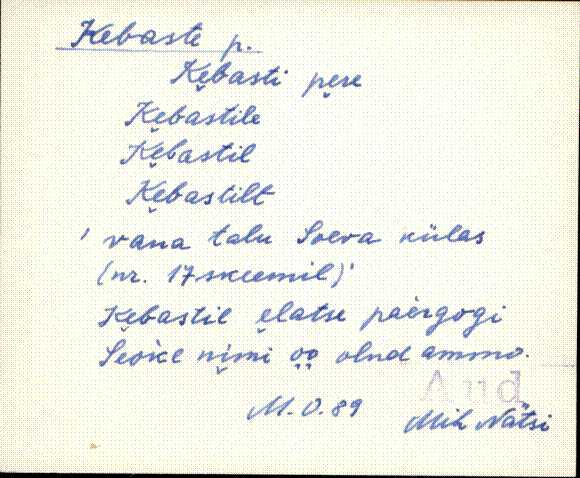 Kebaste p.
Kẹbasti pẹre
Kẹbastile
Kẹbastil
Kẹbastilt
' vana talu Soeva külas
(nr. 17 skeemil)'
Kẹbastil ẹlatse paergogi
Seoke nịmi ọọ olnd ammo.
Aud
M. O. 89
Mih Nätsi